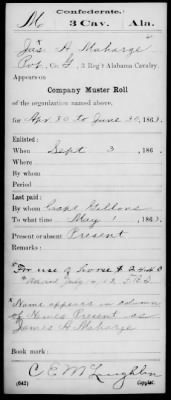 Confederate.
M 3 Cav. Ala.
Jas. A. Maharge
Co. G, 3 Reg't Alabama Cavalry.
Appears on
Company Muster Roll
of the organization named above,
for Apr 30 to June 30, 1863.
Enlisted:
When Sept 3, 186
Where
By whom
Period
Last paid:
By whom Capt
To what time May 1, 1863.
Present or absent Present
Remarks:
*For use of horse $ 24.40
*Name appears in column
of Names Present as
James A. Maharge
Book mark:
C E McLoughlin
(642) Copyist.